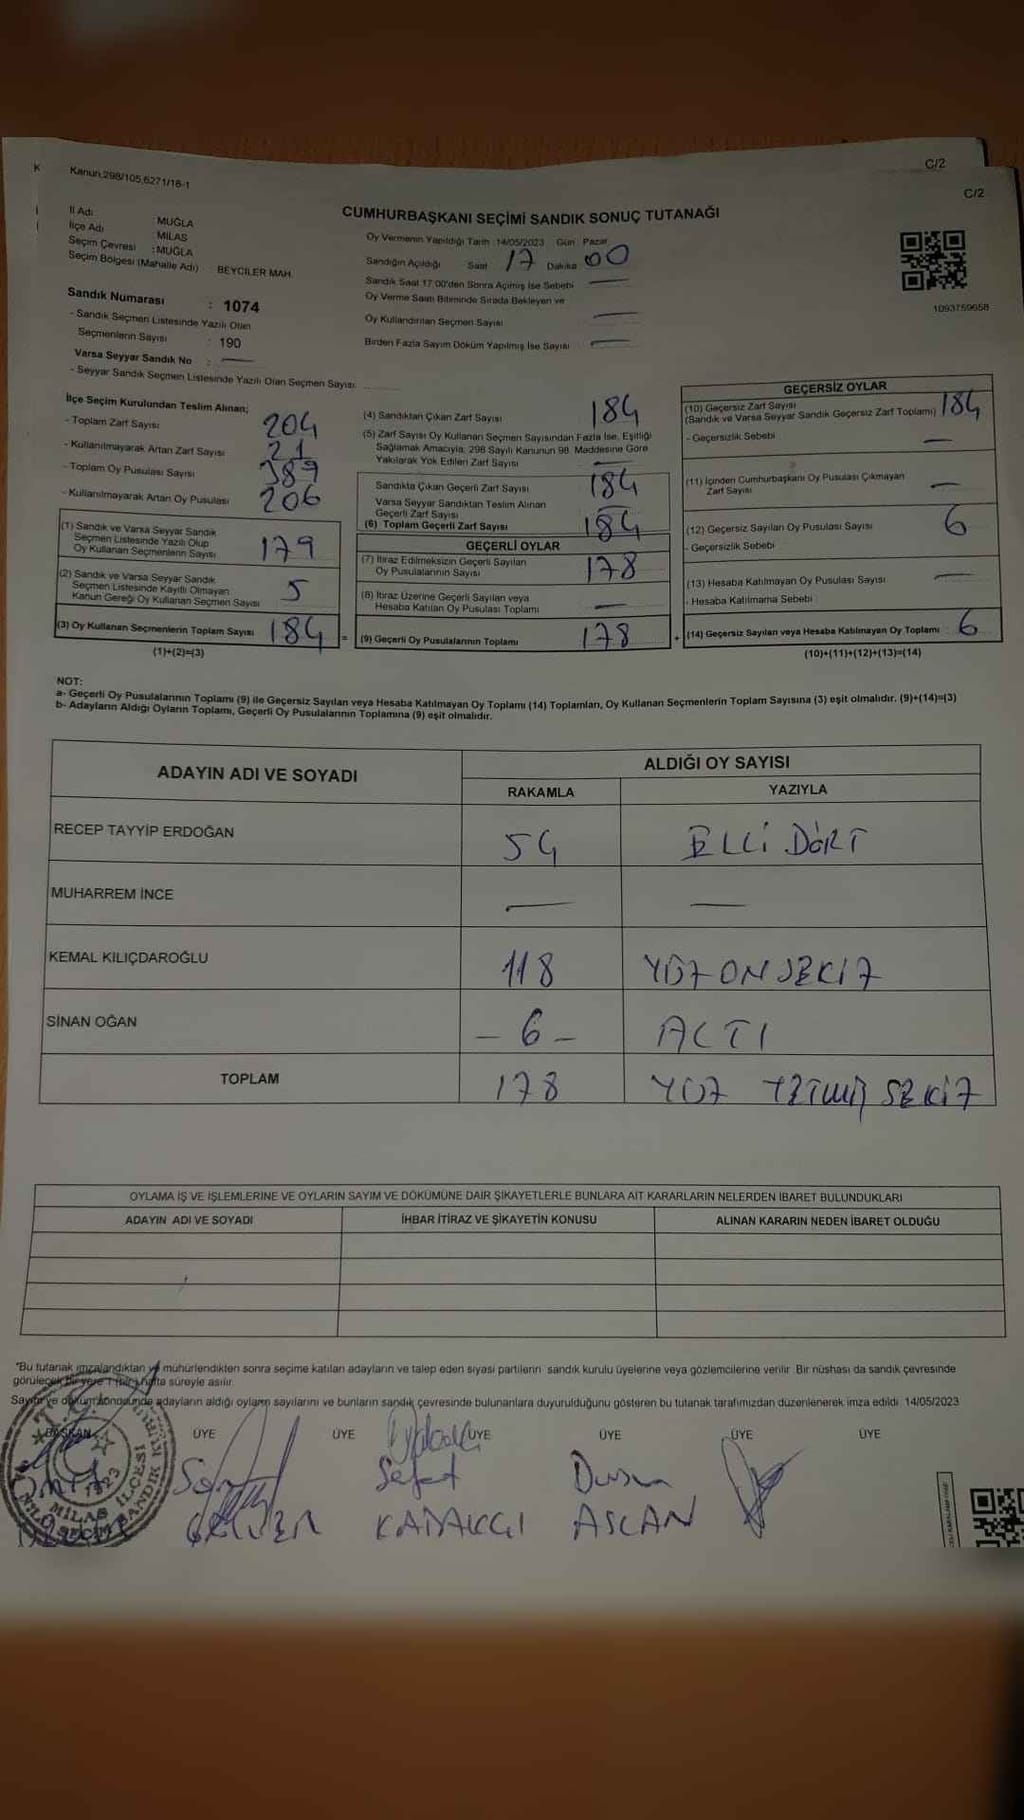 C/2
Kanun,298/105,6271/18-1
C/2
CUMHURBAŞKANI SEÇİMİ SANDIK SONUÇ TUTANAĞI
İl Adı : MUĞLA
İlçe Adı : MİLAS
Seçim Çevresi : MUĞLA
Seçim Bölgesi (Mahalle Adı) : BEYCİLER MAH.
Sandık Numarası : 1074
- Sandık Seçmen Listesinde Yazılı Olan
Seçmenlerin Sayısı : 190
Varsa Seyyar Sandık No : —
- Seyyar Sandık Seçmen Listesinde Yazılı Olan Seçmen Sayısı
Oy Vermenin Yapıldığı Tarih :14/05/2023 Gün : Pazar
Sandığın Açıldığı Saat 17 Dakika 00
Sandık Saat 17.00'den Sonra Açılmış İse Sebebi —
Oy Verme Saati Bitiminde Sırada Bekleyen ve
Oy Kullandırılan Seçmen Sayısı —
Birden Fazla Sayım Döküm Yapılmış İse Sayısı —
1093759658
İlçe Seçim Kurulundan Teslim Alınan;
- Toplam Zarf Sayısı 204
- Kullanılmayarak Artan Zarf Sayısı 21
- Toplam Oy Pusulası Sayısı 389
- Kullanılmayarak Artan Oy Pusulası 206
(1) Sandık ve Varsa Seyyar Sandık
Seçmen Listesinde Yazılı Olup
Oy Kullanan Seçmenlerin Sayısı 179
(2) Sandık ve Varsa Seyyar Sandık
Seçmen Listesinde Kayıtlı Olmayan
Kanun Gereği Oy Kullanan Seçmen Sayısı 5
(3) Oy Kullanan Seçmenlerin Toplam Sayısı 184 =
(1)+(2)=(3)
(4) Sandıktan Çıkan Zarf Sayısı 184
(5) Zarf Sayısı Oy Kullanan Seçmen Sayısından Fazla İse, Eşitliği
Sağlamak Amacıyla, 298 Sayılı Kanunun 98. Maddesine Göre
Yakılarak Yok Edilen Zarf Sayısı —
Sandıkta Çıkan Geçerli Zarf Sayısı 184
Varsa Seyyar Sandıktan Teslim Alınan
Geçerli Zarf Sayısı
(6) Toplam Geçerli Zarf Sayısı 184
GEÇERLİ OYLAR
(7) İtiraz Edilmeksizin Geçerli Sayılan
Oy Pusulalarının Sayısı 178
(8) İtiraz Üzerine Geçerli Sayılan veya
Hesaba Katılan Oy Pusulası Toplamı —
(9) Geçerli Oy Pusulalarının Toplamı 178 +
GEÇERSİZ OYLAR
(10) Geçersiz Zarf Sayısı
(Sandık ve Varsa Seyyar Sandık Geçersiz Zarf Toplamı) 184
- Geçersizlik Sebebi —
(11) İçinden Cumhurbaşkanı Oy Pusulası Çıkmayan
Zarf Sayısı —
(12) Geçersiz Sayılan Oy Pusulası Sayısı 6
- Geçersizlik Sebebi
(13) Hesaba Katılmayan Oy Pusulası Sayısı —
- Hesaba Katılmama Sebebi
(14) Geçersiz Sayılan veya Hesaba Katılmayan Oy Toplamı 6
(10)+(11)+(12)+(13)=(14)
NOT:
a- Geçerli Oy Pusulalarının Toplamı (9) ile Geçersiz Sayılan veya Hesaba Katılmayan Oy Toplamı (14) Toplamları, Oy Kullanan Seçmenlerin Toplam Sayısına (3) eşit olmalıdır. (9)+(14)=(3)
b- Adayların Aldığı Oyların Toplamı, Geçerli Oy Pusulalarının Toplamına (9) eşit olmalıdır.
ADAYIN ADI VE SOYADI
ALDIĞI OY SAYISI
RAKAMLA YAZIYLA
RECEP TAYYİP ERDOĞAN 54 ELLİ DÖRT
MUHARREM İNCE — —
KEMAL KILIÇDAROĞLU 118 YÜZ ON SEKİZ
SİNAN OĞAN - 6 - ALTI
TOPLAM 178 YÜZ YETMİŞ SEKİZ
OYLAMA İŞ VE İŞLEMLERİNE VE OYLARIN SAYIM VE DÖKÜMÜNE DAİR ŞİKAYETLERLE BUNLARA AİT KARARLARIN NELERDEN İBARET BULUNDUKLARI
ADAYIN ADI VE SOYADI İHBAR İTİRAZ VE ŞİKAYETİN KONUSU ALINAN KARARIN NEDEN İBARET OLDUĞU
*Bu tutanak imzalandıktan ve mühürlendikten sonra seçime katılan adayların ve talep eden siyasi partilerin sandık kurulu üyelerine veya gözlemcilerine verilir. Bir nüshası da sandık çevresinde
görülecek bir yere 1 (bir) hafta süreyle asılır.
Sayım ve döküm sonucunda adayların aldığı oyların sayılarını ve bunların sandık çevresinde bulunanlara duyurulduğunu gösteren bu tutanak tarafımızdan düzenlenerek imza edildi. 14/05/2023
BAŞKAN ÜYE ÜYE ÜYE ÜYE ÜYE ÜYE
Sefat Dursun
ASLAN
T.C.
1923
MİLAS İLÇESİ